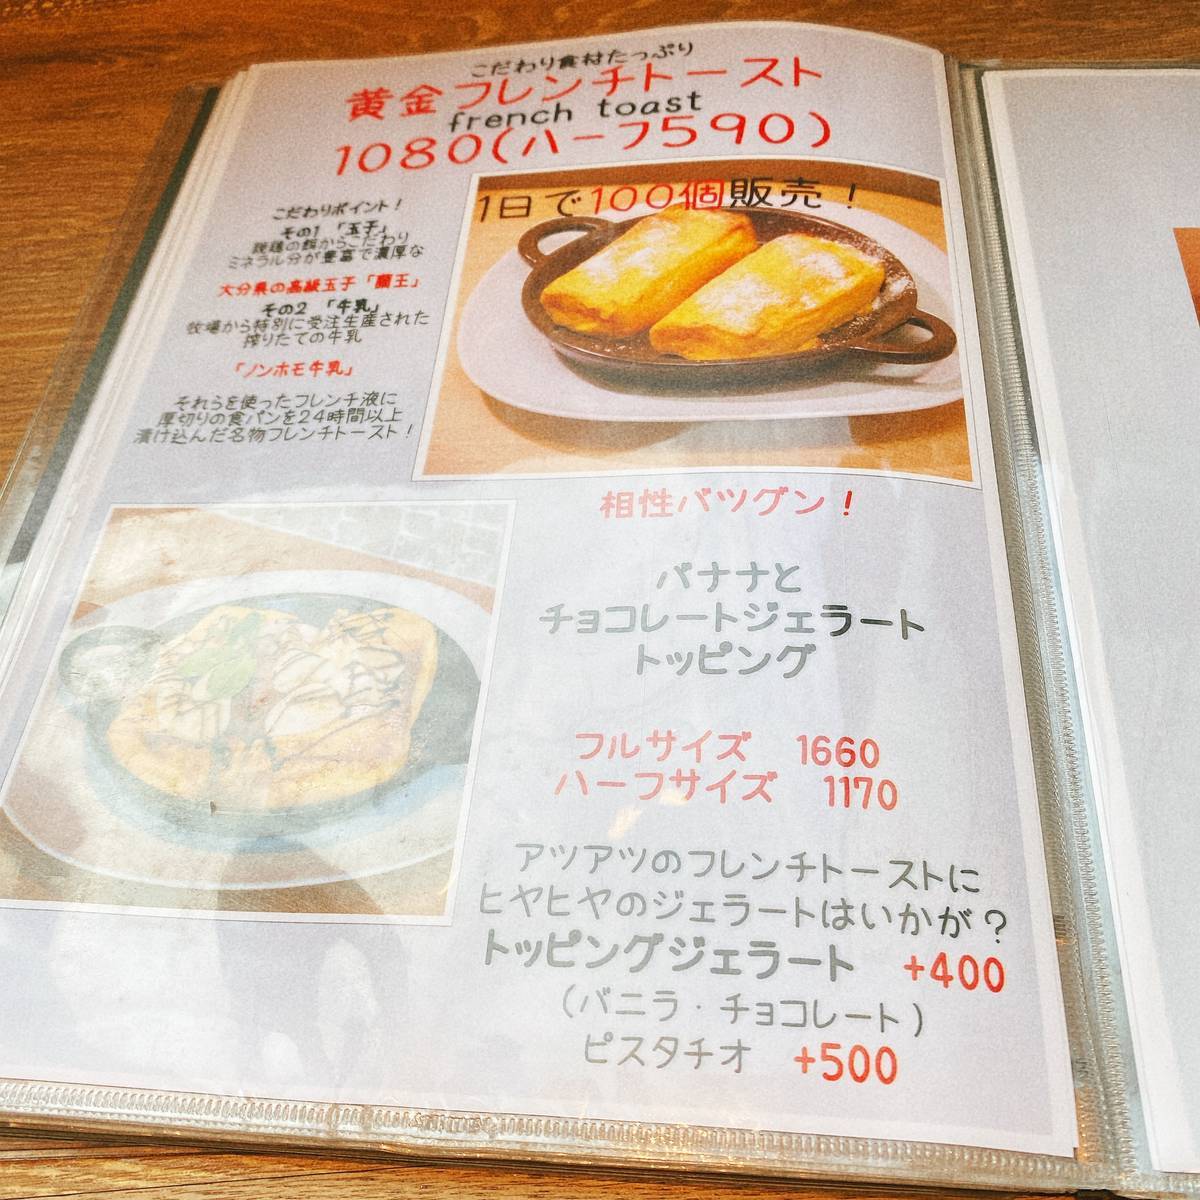 こだわり食材たっぷり
黄金フレンチトースト
french toast
1080(ハーフ590)
1日で100個販売！
こだわりポイント！
その1 「玉子」
親鶏の餌からこだわり
ミネラル分が豊富で濃厚な
大分県の高級玉子「蘭王」
その2 「牛乳」
牧場から特別に受注生産された
搾りたての牛乳
「ノンホモ牛乳」
それらを使ったフレンチ液に
厚切りの食パンを24時間以上
漬け込んだ名物フレンチトースト！
相性バツグン！
バナナと
チョコレートジェラート
トッピング
フルサイズ 1660
ハーフサイズ 1170
アツアツのフレンチトーストに
ヒヤヒヤのジェラートはいかが？
トッピングジェラート +400
（バニラ・チョコレート）
ピスタチオ +500